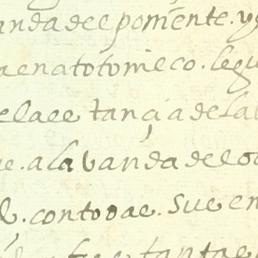 anda del poniente. y
aenatotomleco. legu
elaee tançia de la
e. a la vanda del o
l. con todae. sue en